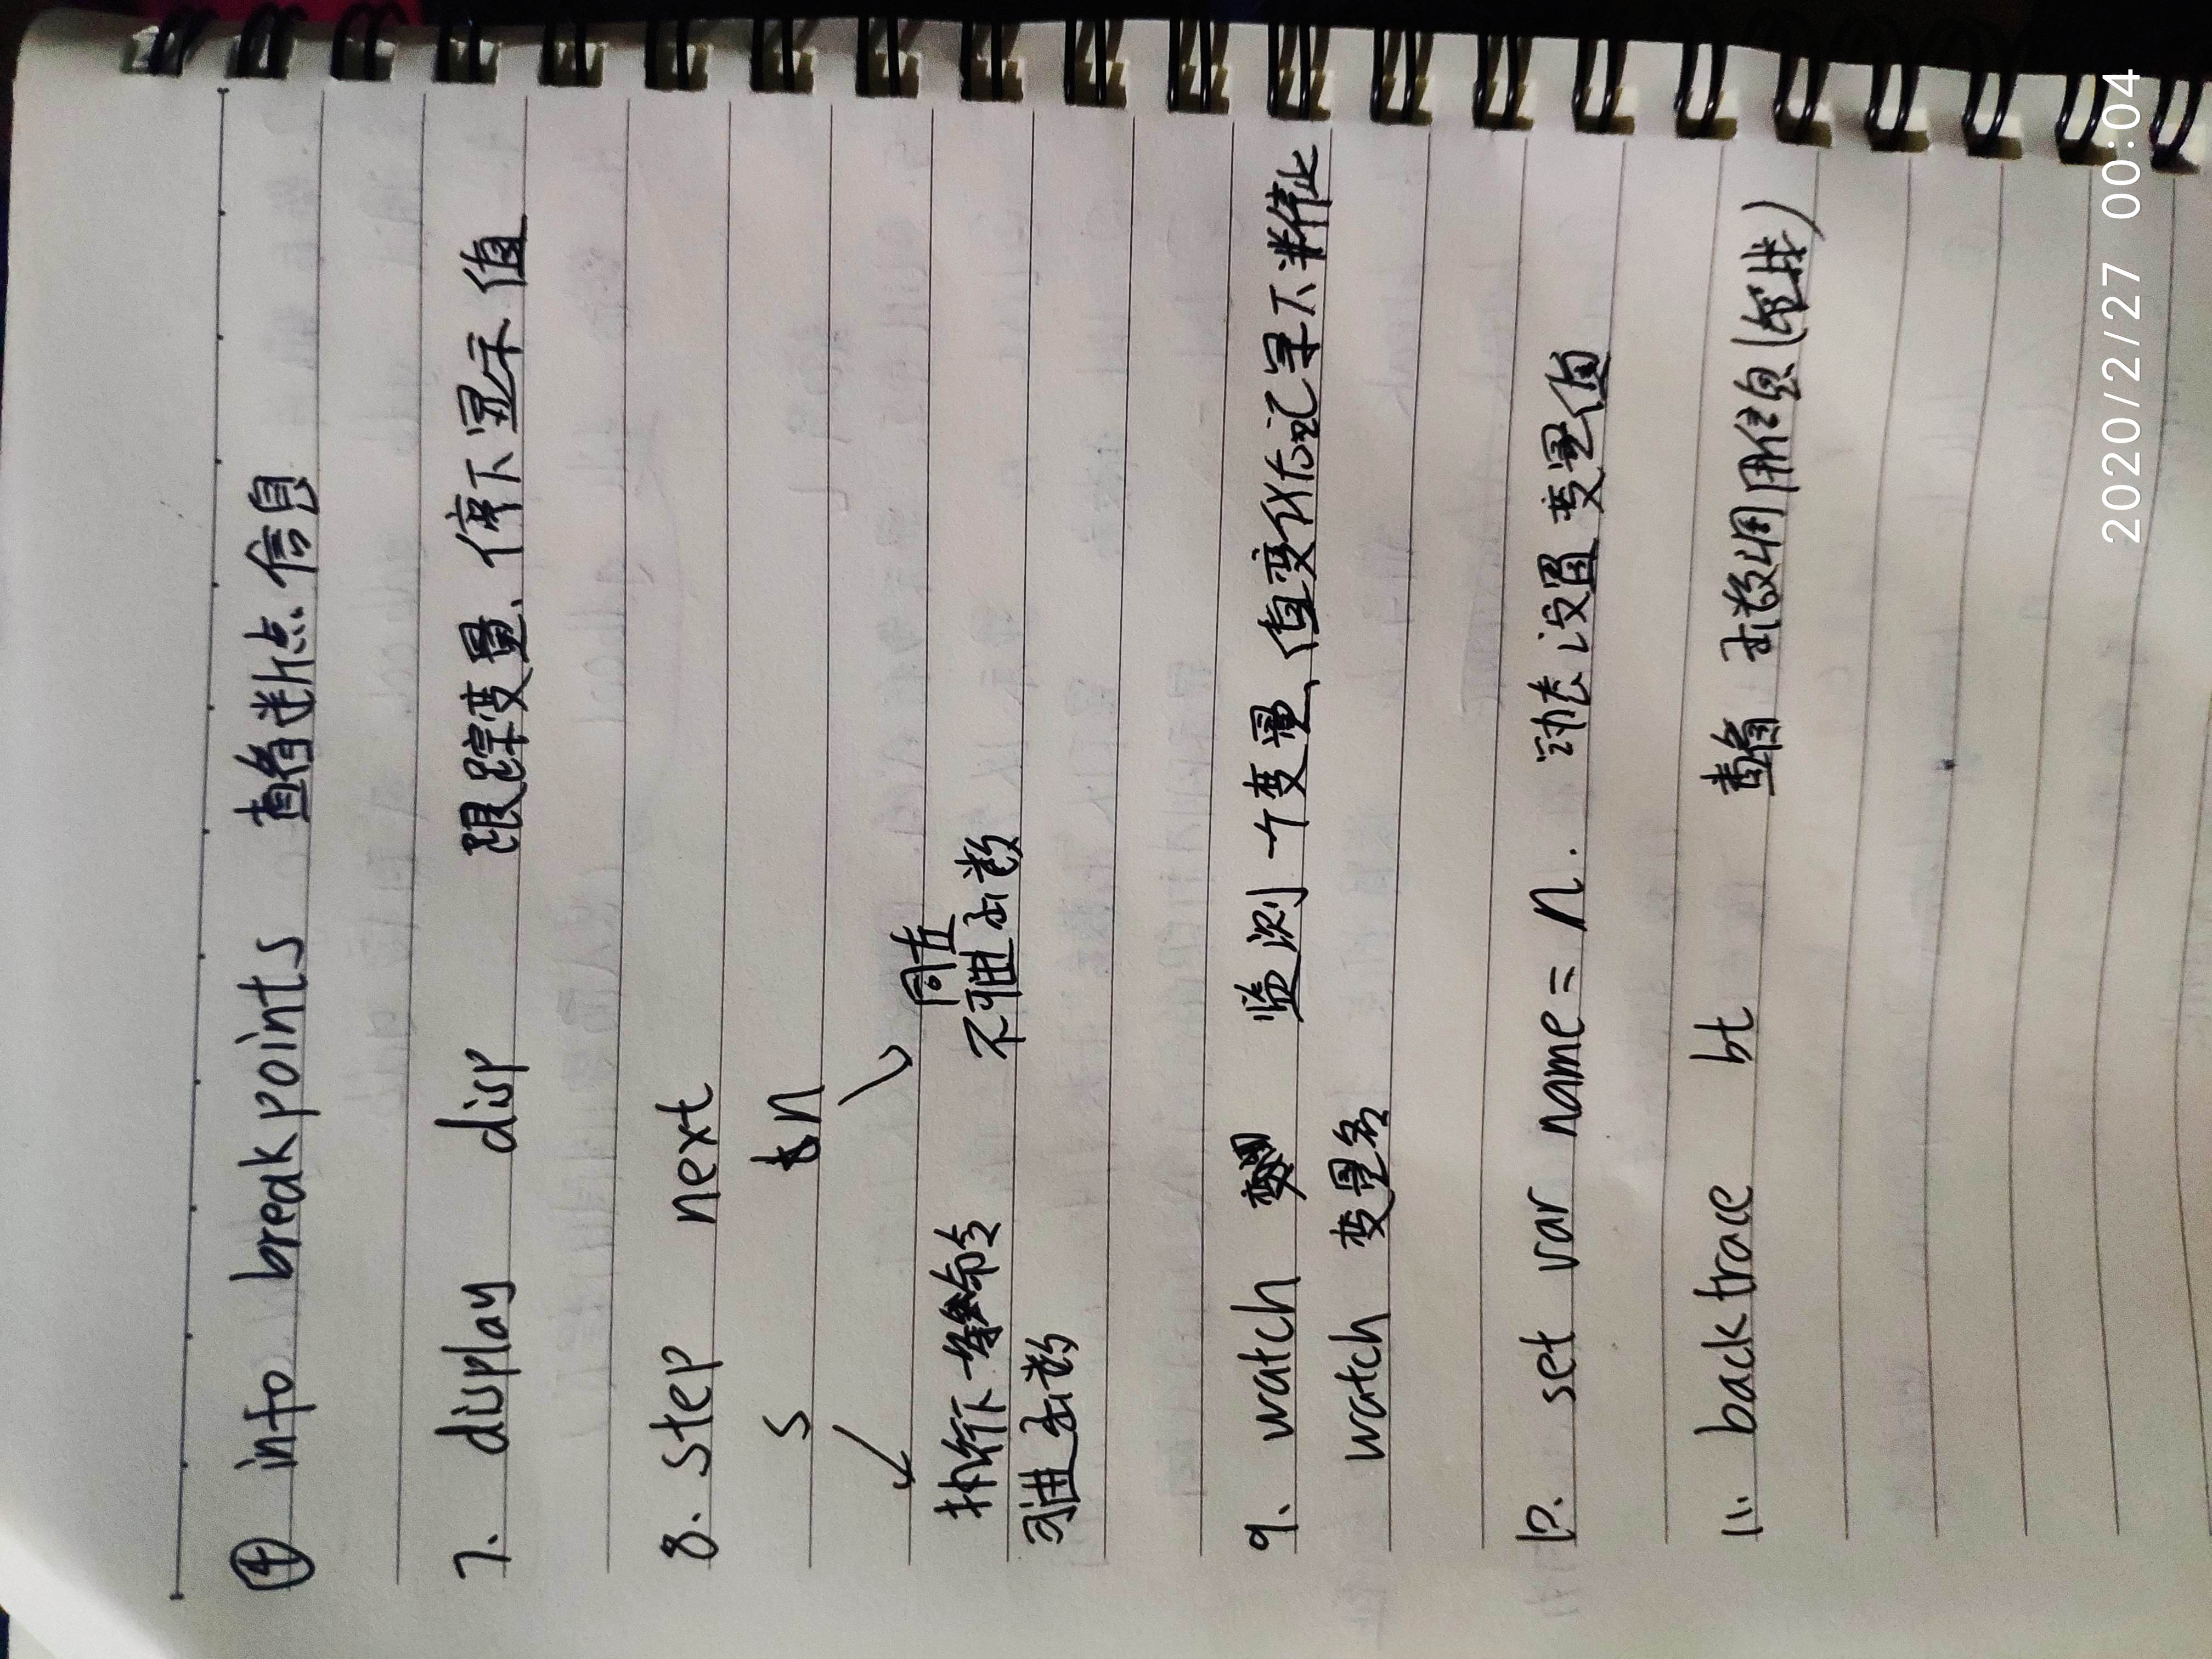 ④ info breakpoints 查看断点信息
7. display disp 跟踪变量、停下显示值
8. step next
s n
同左
执行下一条命令 不进函数
进函数
9. watch 监测一个变量、值变化后记录不断停止
watch 变量名
10. set var name = n. 动态设置变量值
11. backtrace bt 查看 函数调用信息(堆栈)
2020/2/27 00:04